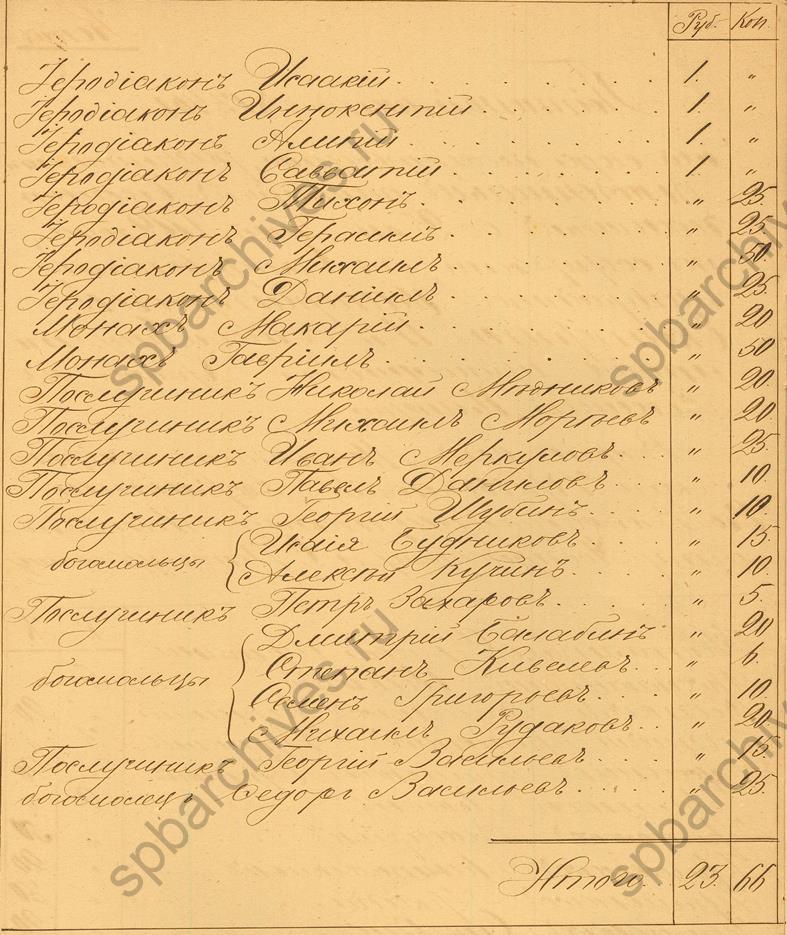 Руб. Коп.
Іеродіаконъ Исаакій. 1. "
Іеродіаконъ Иннокентій. 1. "
Іеродіаконъ Алипій 1. "
Іеродіаконъ Савватій 1. "
Іеродіаконъ Тихонъ. " 25.
Іеродіаконъ Герасимъ. " 25.
Іеродіаконъ Михаилъ " 50.
Іеродіаконъ Даніилъ. " 25.
Монахъ Макарій " 20
Монахъ Гавріилъ. " 50
Послушникъ Николай Мюдниковъ " 20.
Послушникъ Михаилъ " 20.
Послушникъ Иванъ Меркуловъ. " 25.
Послушникъ Павелъ Даниловъ. " 10.
Послушникъ Георгій Шубинъ. " 10.
богомольцы { Исаія Будниковъ. " 15.
Алексѣй Кучинъ. " 10.
Послушникъ Петръ Захаровъ. " 5.
богомольцы { Дмитрій Балабинъ " 20
Степанъ Киселевъ. " 6.
Семенъ Григорьевъ. " 10.
Михаилъ Рудаковъ. " 20.
Послушникъ Георгій Васильевъ. " 15.
богомолецъ Ѳедоръ Васильевъ. " 25.
Итого. 23. 66
spbarchives.ru
spbarchives.ru
spbarchives.ru
spbarchives.ru